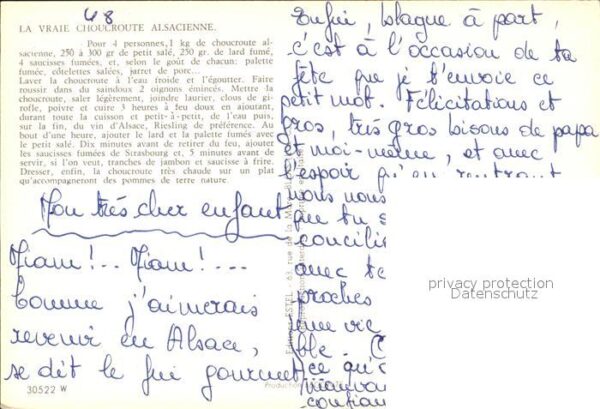 48
LA VRAIE CHOUCROUTE ALSACIENNE.
Pour 4 personnes, 1 kg de choucroute al-
sacienne, 250 à 300 gr de petit salé, 250 gr. de lard fumé,
4 saucisses fumées, et, selon le goût de chacun: palette
fumée, côtelettes salées, jarret de porc...
Laver la choucroute à l'eau froide et l'égoutter. Faire
roussir dans du saindoux 2 oignons émincés. Mettre la
choucroute, saler légèrement, joindre laurier, clous de gi-
rofle, poivre et cuire 3 heures à feu doux en ajoutant,
durant toute la cuisson et petit-à-petit, de l'eau puis,
sur la fin, du vin d'Alsace, Riesling de préférence. Au
bout d'une heure, ajouter le lard et la palette fumés avec
le petit salé. Dix minutes avant de retirer du feu, ajouter
les saucisses fumées de Strasbourg et, 5 minutes avant de
servir, si l'on veut, tranches de jambon et saucisse à frire.
Dresser, enfin, la choucroute très chaude sur un plat
qu'accompagneront des pommes de terre nature.
Mon très cher enfant
Miam!.. Miam!....
Comme j'aimerais
revenir en Alsace,
se dit le fin gourmet
30522 W
Enfin, blague à part,
c'est à l'occasion de ta
fête que je t'envoie ce
petit mot. Félicitations et
gros, très gros bisous de papa
et moi-même, et avec
l'espoir qu'en rentrant
nous nous
que tu s
concilie
avec te
proches
une vie
ble. C
ce qu'o
mauva
confian
ESTEL - 63, rue de la
Production
privacy protection
Datenschutz